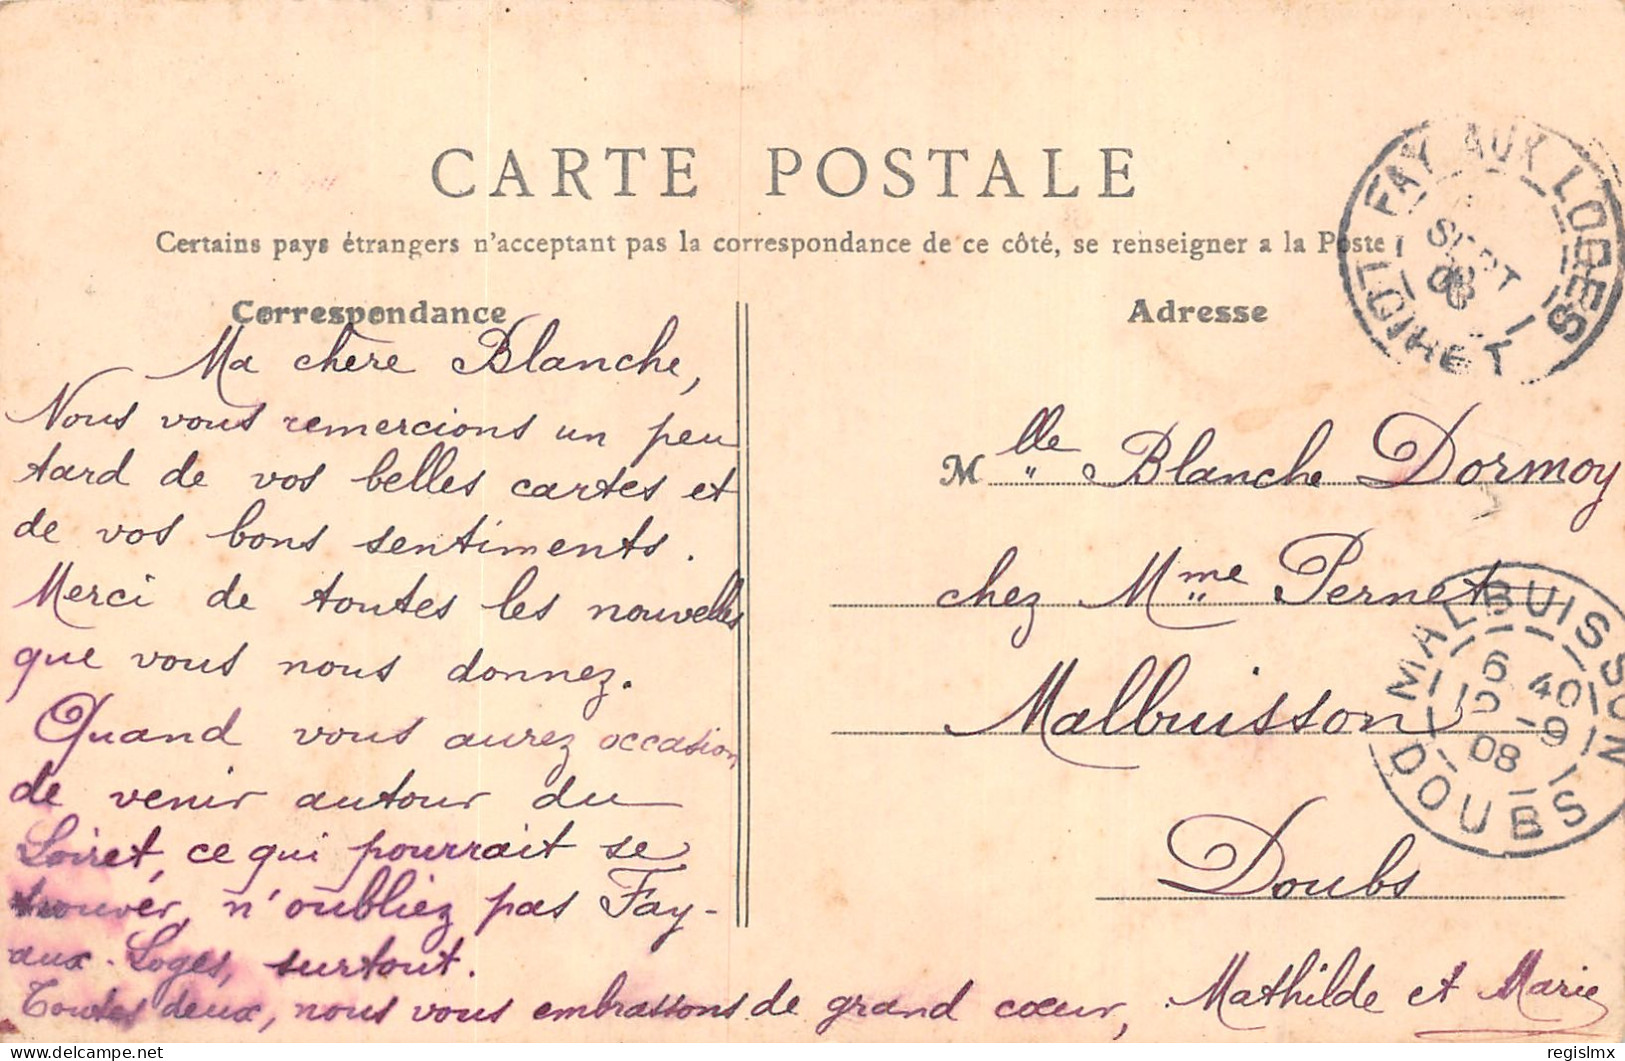 CARTE POSTALE
Certains pays étrangers n'acceptant pas la correspondance de ce côté, se renseigner a la Poste
Correspondance
Ma chère Blanche,
Nous vous remercions un peu
tard de vos belles cartes et
de vos bons sentiments.
Merci de toutes les nouvelles
que vous nous donnez.
Quand vous aurez occasion
de venir autour du
Loiret, ce qui pourrait se
trouver, n'oubliez pas Fay-
aux-Loges, surtout.
Toutes deux, nous vous embrassons de grand cœur, Mathilde et Marie
Adresse
Mlle Blanche Dormoy
chez Mme Pernet
Malbuisson
Doubs
FAY AUX LOGES
SEPT
08
LOIRET
MALBUISSON
6 40
-9
08
DOUBS
delcampe.net
regislmx